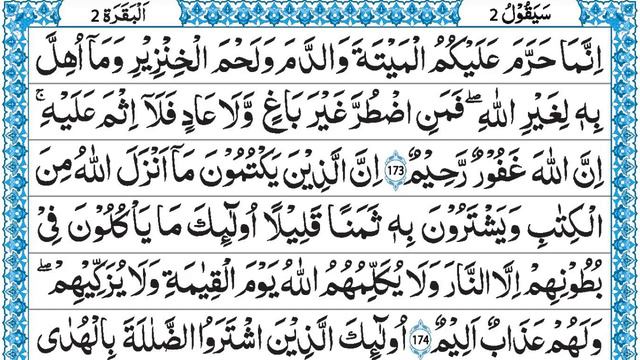 سَيَقُوْلُ 2
اَلْبَقَرَة 2
اِنَّمَا حَرَّمَ عَلَيْكُمُ الْمَيْتَةَ وَالدَّمَ وَلَحْمَ الْخِنْزِيْرِ وَمَاۤ اُهِلَّ
بِهٖ لِغَيْرِ اللّٰهِ ۖ فَمَنِ اضْطُرَّ غَيْرَ بَاغٍ وَّلَا عَادٍ فَلَاۤ اِثْمَ عَلَيْهِ ۚ
اِنَّ اللّٰهَ غَفُوْرٌ رَّحِيْمٌ 173 اِنَّ الَّذِيْنَ يَكْتُمُوْنَ مَاۤ اَنْزَلَ اللّٰهُ مِنَ
الْكِتٰبِ وَيَشْتَرُوْنَ بِهٖ ثَمَنًا قَلِيْلًا اُولٰٓئِكَ مَا يَاْكُلُوْنَ فِىْ
بُطُوْنِهِمْ اِلَّا النَّارَ وَلَا يُكَلِّمُهُمُ اللّٰهُ يَوْمَ الْقِيٰمَةِ وَلَا يُزَكِّيْهِمْ ۖ
وَلَهُمْ عَذَابٌ اَلِيْمٌ 174 اُولٰٓئِكَ الَّذِيْنَ اشْتَرَوُا الضَّلٰلَةَ بِالْهُدٰى